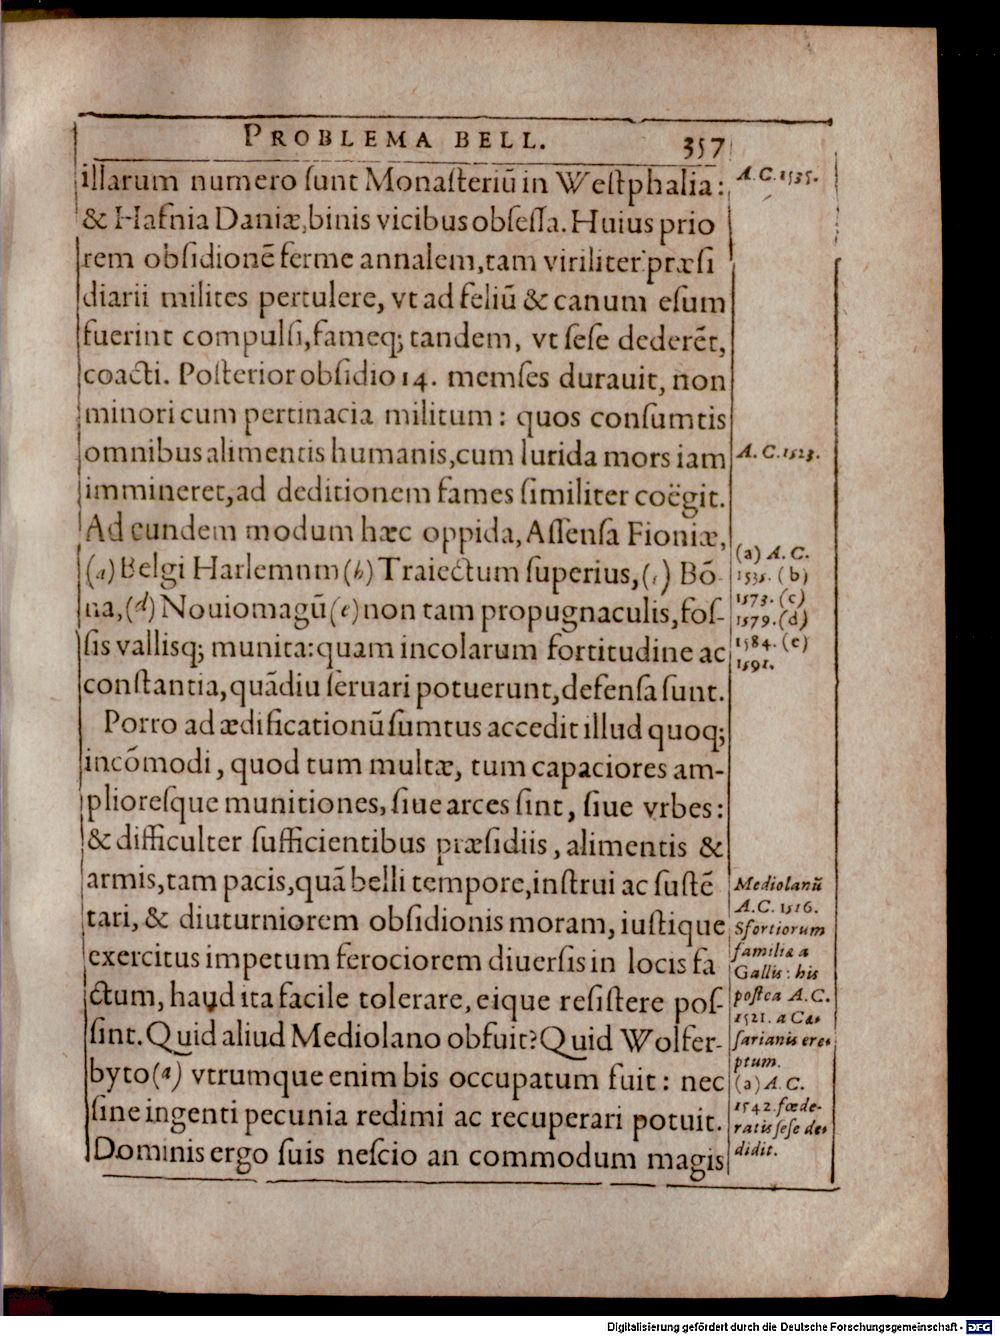 PROBLEMA BELL. 357
illarum numero ſunt Monaſteriũ in Weſtphalia:
& Hafnia Daniæ, binis vicibus obſeſſa. Huius prio
rem obſidionẽ ferme annalem, tam viriliter præſi
diarii milites pertulere, vt ad feliũ & canum eſum
fuerint compulſi, fameq; tandem, vt ſeſe dederẽt,
coacti. Poſterior obſidio 14. memſes durauit, non
minori cum pertinacia militum: quos conſumtis
omnibus alimentis humanis, cum lurida mors iam
immineret, ad deditionem fames ſimiliter coëgit.
Ad eundem modum hæc oppida, Aſſenſa Fioniæ,
(a) Belgi Harlemum (b) Traiectum ſuperius, (c) Bõ-
na, (d) Nouiomagũ (e) non tam propugnaculis, foſ-
ſis vallisq; munita: quam incolarum fortitudine ac
conſtantia, quãdiu ſeruari potuerunt, defenſa ſunt.
Porro ad ædificationũ ſumtus accedit illud quoq;
incõmodi, quod tum multæ, tum capaciores am-
plioreſque munitiones, ſiue arces ſint, ſiue vrbes:
& difficulter ſufficientibus præſidiis, alimentis &
armis, tam pacis, quã belli tempore, inſtrui ac ſuſtẽ
tari, & diuturniorem obſidionis moram, iuſtique
exercitus impetum ferociorem diuerſis in locis fa
ctum, haud ita facile tolerare, eique reſiſtere poſ-
ſint. Quid aliud Mediolano obfuit? Quid Wolfer-
byto (a) vtrumque enim bis occupatum fuit: nec
ſine ingenti pecunia redimi ac recuperari potuit.
Dominis ergo ſuis neſcio an commodum magis
A. C. 1535.
A. C. 1523.
(a) A. C.
1535. (b)
1573. (c)
1579. (d)
1584. (e)
1591.
Mediolanũ
A. C. 1516.
Sfortiorum
familiæ a
Gallis: his
poſtea A. C.
1521. a Cæ-
ſarianis ere-
ptum.
(a) A. C.
1542. fœde-
ratis ſeſe de-
didit.
Digitalisierung gefördert durch die Deutsche Forschungsgemeinschaft - DFG